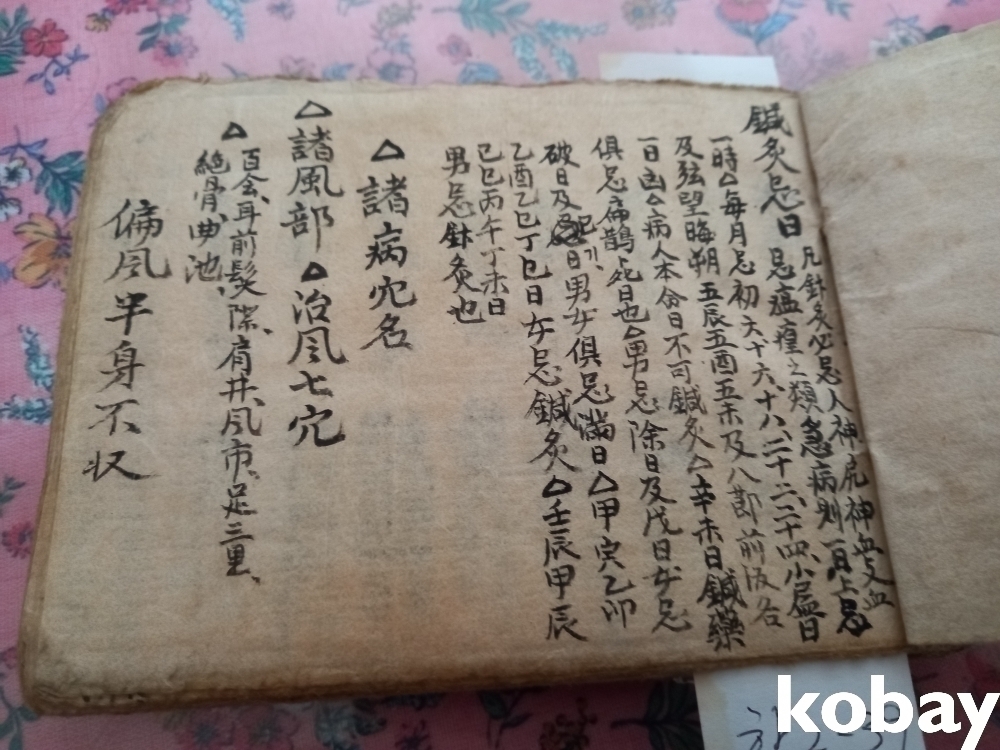 鍼灸忌日 凡針灸必忌人神尻神血支血
忌瘟㾮之類急病則一日上忌
一時△每月忌初六十六、十八、二十二、二十四、小盡日
及弦望晦朔 五辰五酉五未及八節前後各
一日凶△病人本命日不可鍼灸△辛未日鍼藥
俱忌扁鵲死日也△男忌除日及戊日女忌
破日及 日男女俱忌滿日△甲寅乙卯
乙酉乙巳丁巳日女忌鍼灸△壬辰甲辰
己巳丙午丁未日
男忌鉢灸也
△諸病穴名
△諸風部 △治風七穴
△百会、耳前髮際、肩井、風市、足三里、
絶骨、曲池、
偏風半身不収
kobay